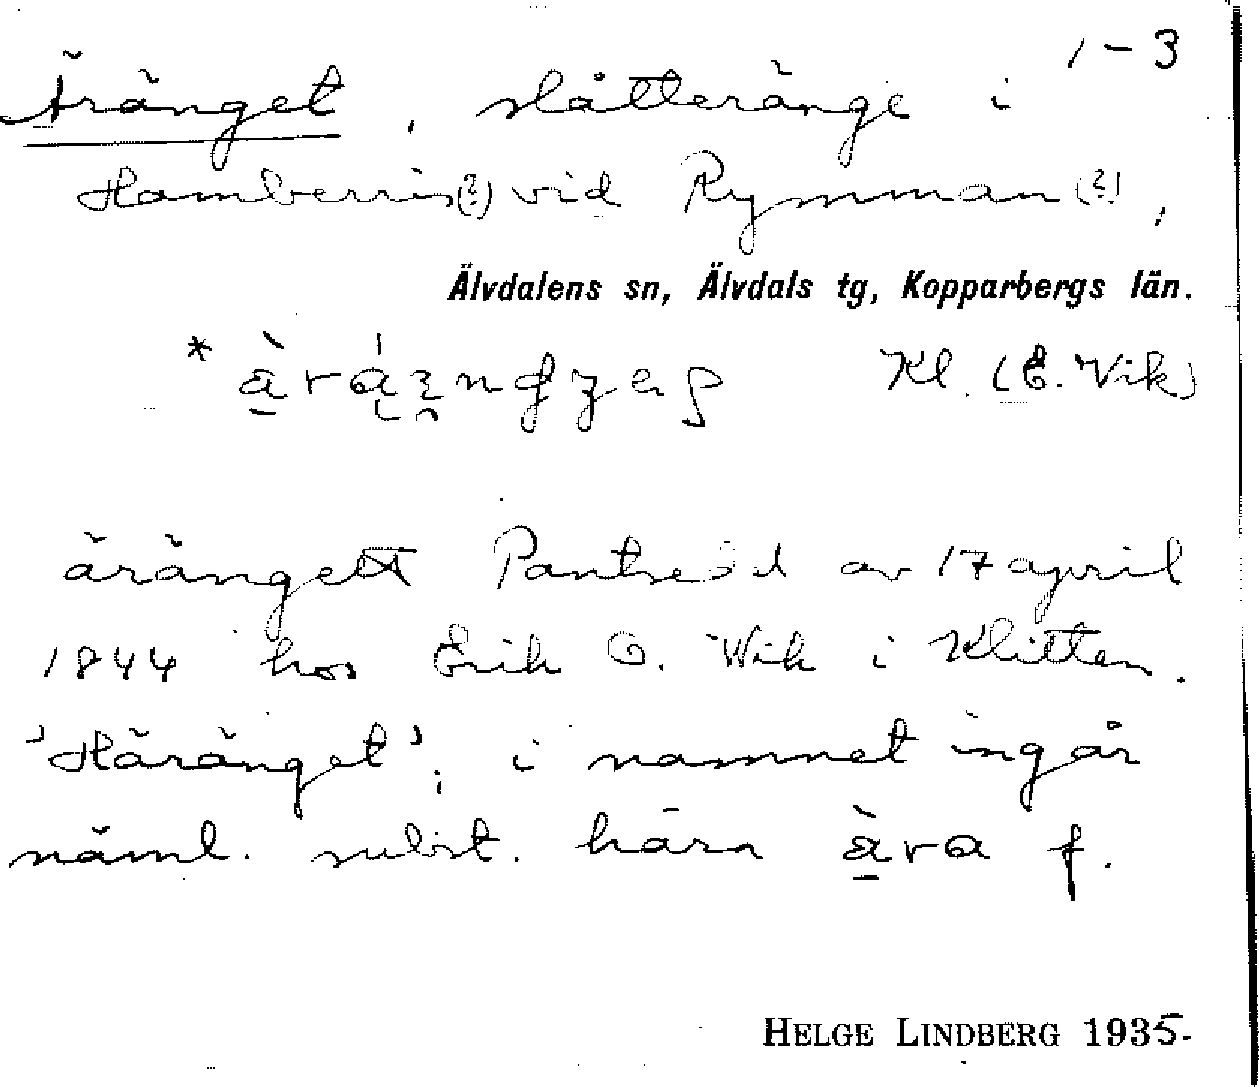 1-3
Äränget, slåtteränge i
Hamberris(?) vid Rymman(?),
Älvdalens sn, Älvdals tg, Kopparbergs län.
Kl. (E. Wik)
ärängett Pantsedel av 17 april
1844 hos Erik O. Wik i Klitten.
'Häränget'; i namnet ingår
näml. subst. hära àra f.
HELGE LINDBERG 1935.